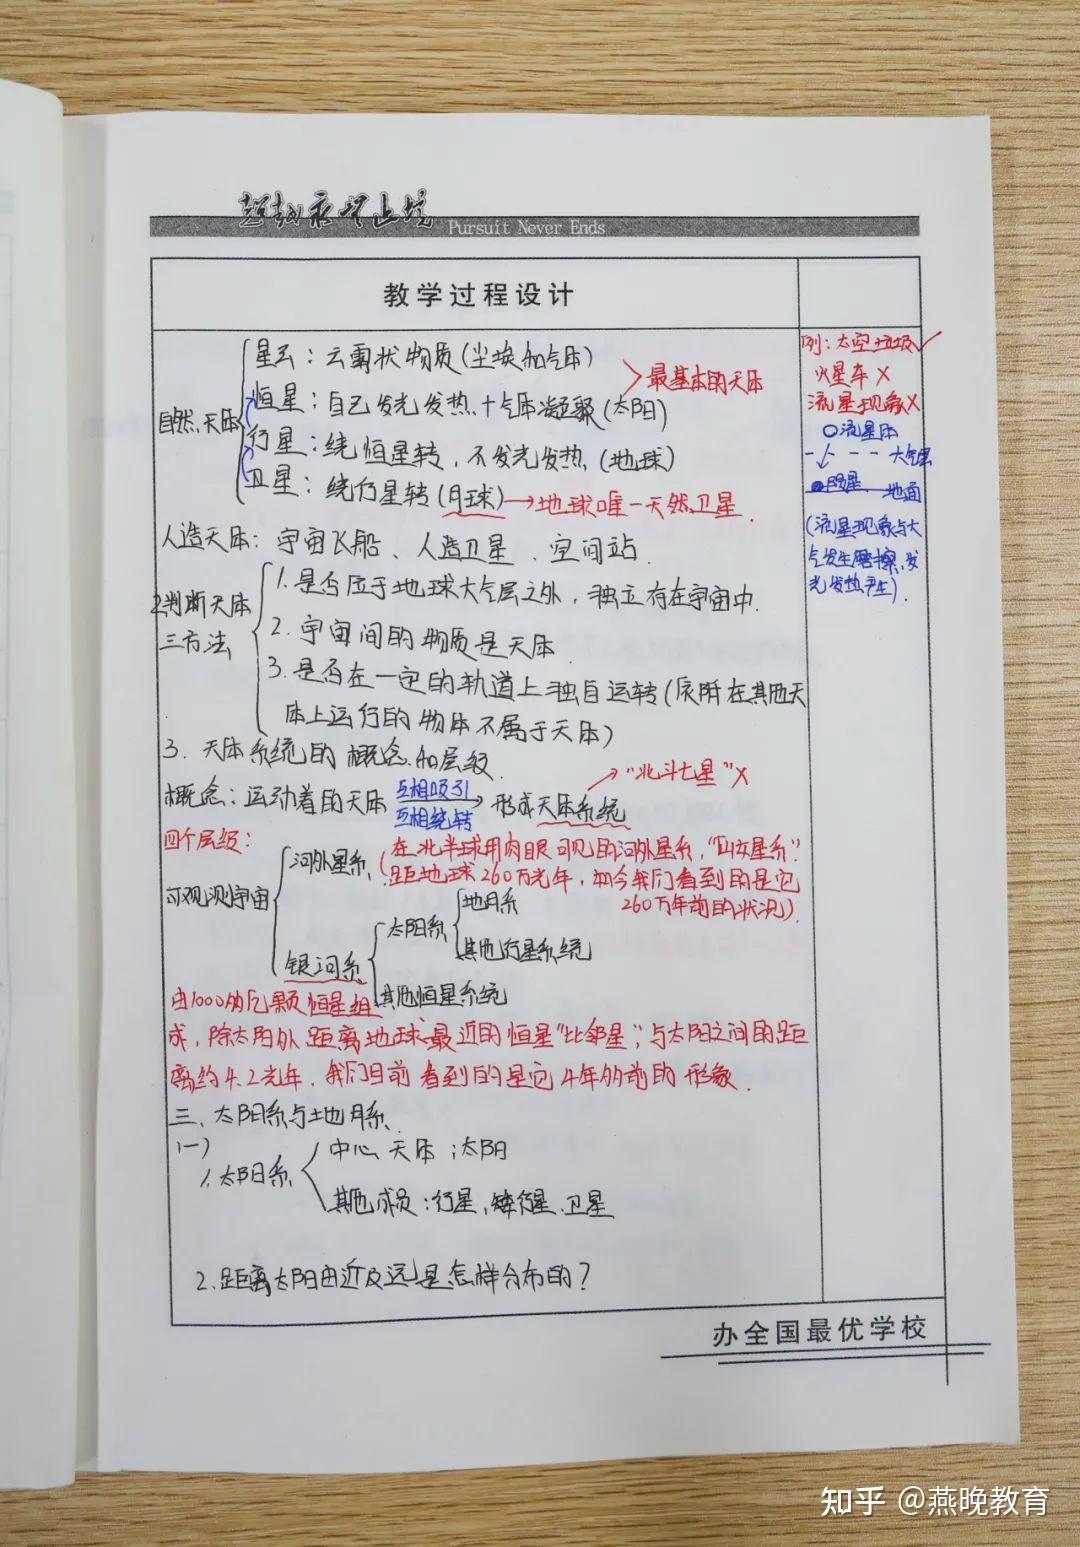 超越永无止境
Pursuit Never Ends
教学过程设计
自然天体
星云：云雾状物质(尘埃和气体)
恒星：自己发光发热,十气体凝聚(太阳)
最基本的天体
行星：绕恒星转,不发光发热(地球)
卫星：绕行星转(月球)→地球唯一天然卫星.
人造天体：宇宙飞船、人造卫星、空间站.
2.判断天体三方法
1.是否位于地球大气层之外,独立存在宇宙中.
2.宇宙间的物质是天体.
3.是否在一定的轨道上独自运转(依附在其他天
体上运行的物体不属于天体)
3.天体系统的概念和层级.
概念：运动着的天体 互相吸引 互相绕转 形成天体系统
→"北斗七星"X
四个层级：
可观测宇宙
河外星系(在北半球用肉眼可见的河外星系,"仙女星系".
距地球260万光年,如今我们看到的是它
260万年前的状况).
银河系
太阳系
地月系
其他行星系统
其他恒星系统
由1000多亿颗恒星组
成,除太阳外,距离地球最近的恒星"比邻星";与太阳之间的距
离约4.2光年.我们目前看到的是它4年多前的形象.
三、太阳系与地月系.
(一)
1.太阳系
中心天体：太阳
其他成员：行星、矮行星、卫星
2.距离太阳由近及远是怎样分布的?
例：太空垃圾✓
火星车X
流星现象X
流星体
大气层
陨星 地面
(流星现象与大
气发生磨擦,发
光发热产生).
办全国最优学校
知乎 @燕晚教育